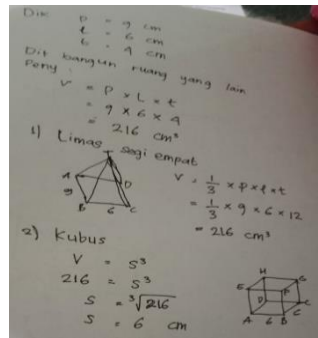 Dik P = 9 cm
l = 6 cm
t = 4 cm
Dit bangun ruang yang lain
Peny :
V = P × L × t
= 9 × 6 × 4
= 216 cm³
1) Limas segi empat
T
A
D
9
B 6 C
V = 1/3 × p × l × t
= 1/3 × 9 × 6 × 12
= 216 cm³
2) Kubus
V = S³
216 = S³
S = ³√216
S = 6 cm
H G
E F
D C
6
A 6 B